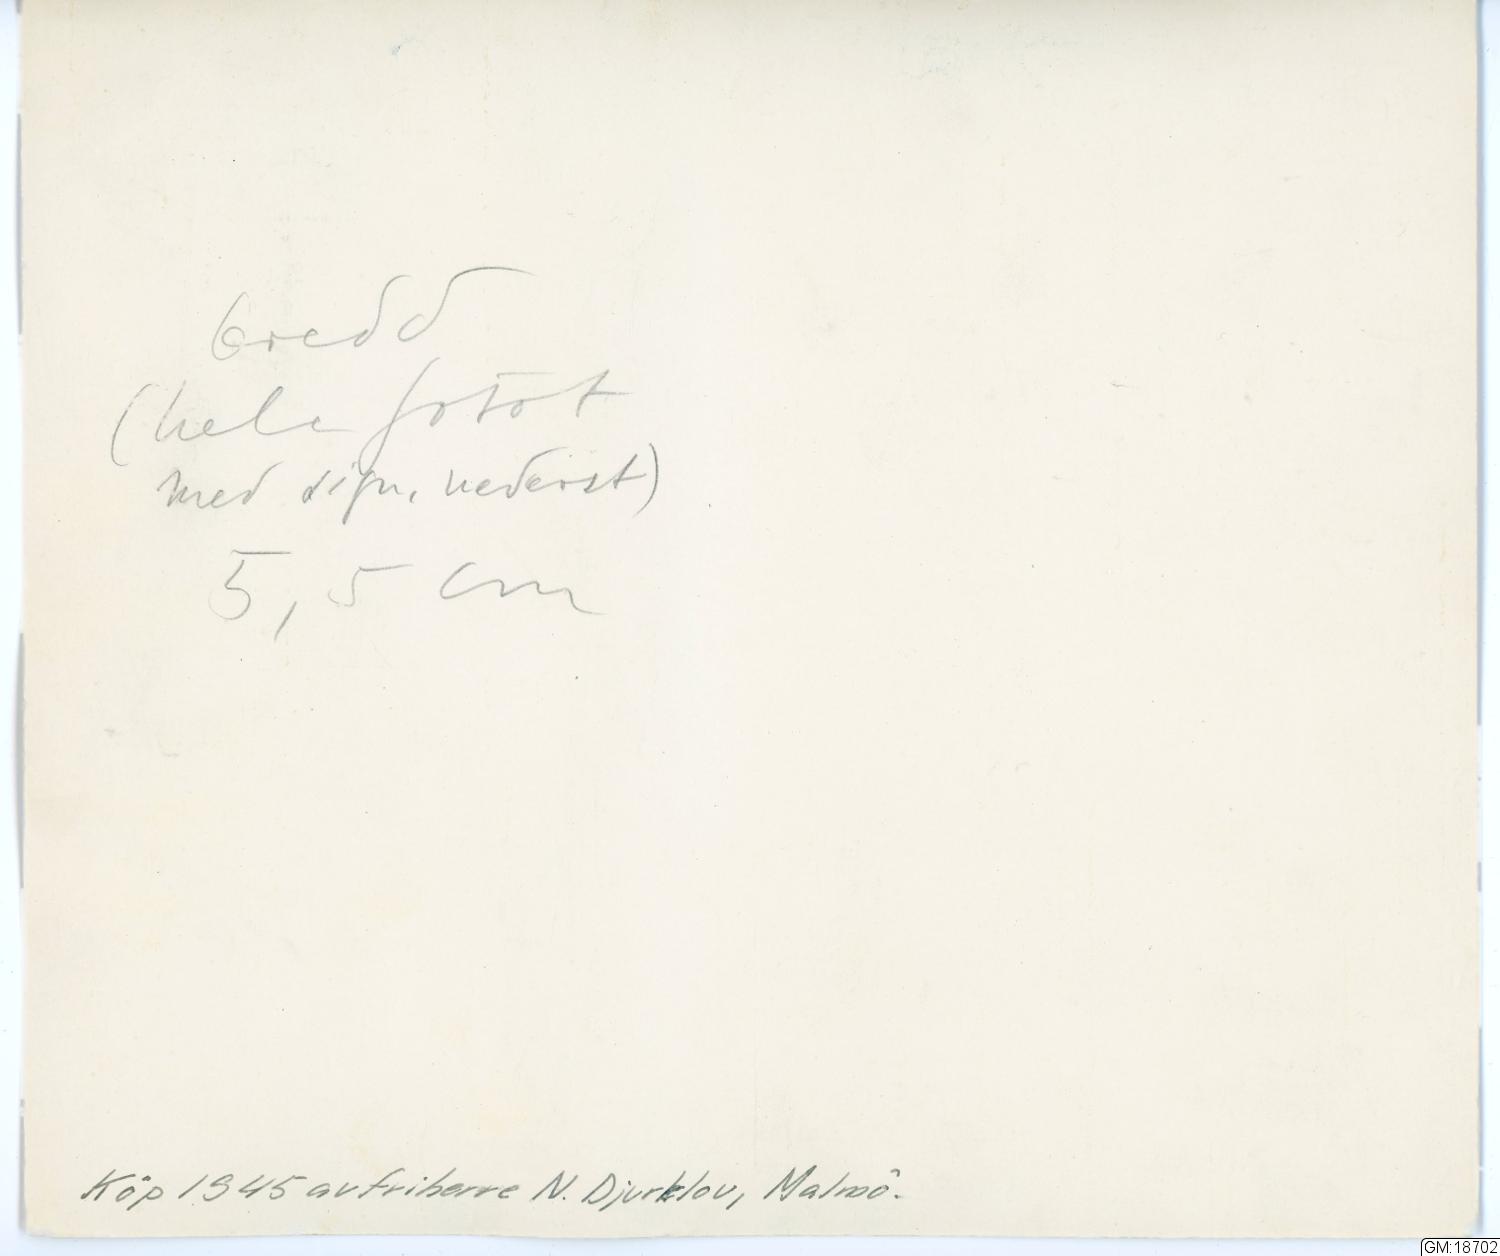 bredd
(hela fotot
med sign. nederst)
5,5 cm
Köp 1945 av friherre N. Djurklou, Malmö.
GM:18702